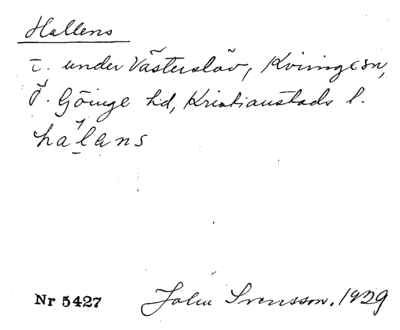 Hallens
t. under Västerslöv, Kvinge sn,
Ö. Göinge hd, Kristianstads l.
halans
Nr 5427 John Svensson. 1929